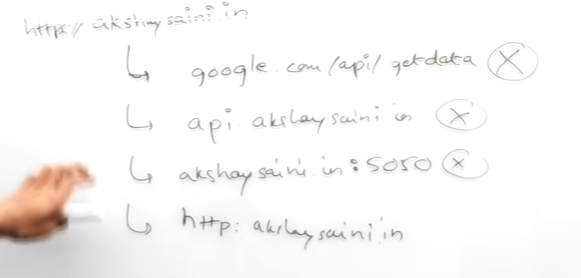 https// akshay saini.in
↳ google.com/api/getdata X
↳ api.akshaysaini.in X
↳ akshaysaini.in:5050 X
↳ http: akshaysaini.in